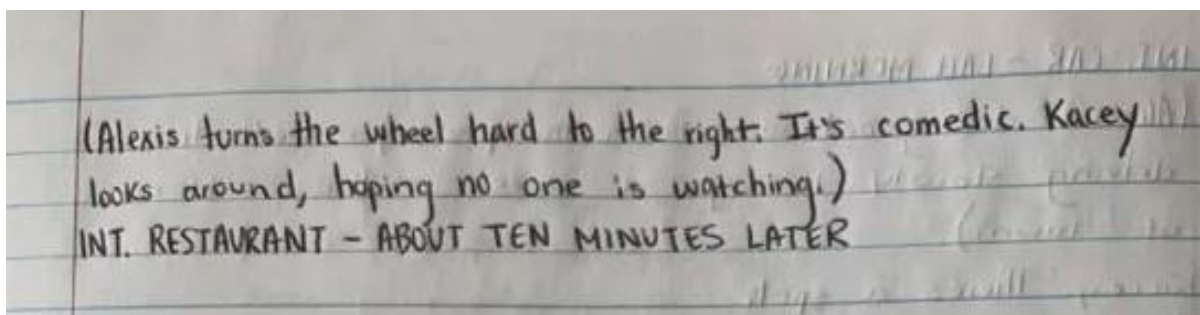 (Alexis turns the wheel hard to the right. It's comedic. Kacey
looks around, hoping no one is watching.)
INT. RESTAURANT - ABOUT TEN MINUTES LATER